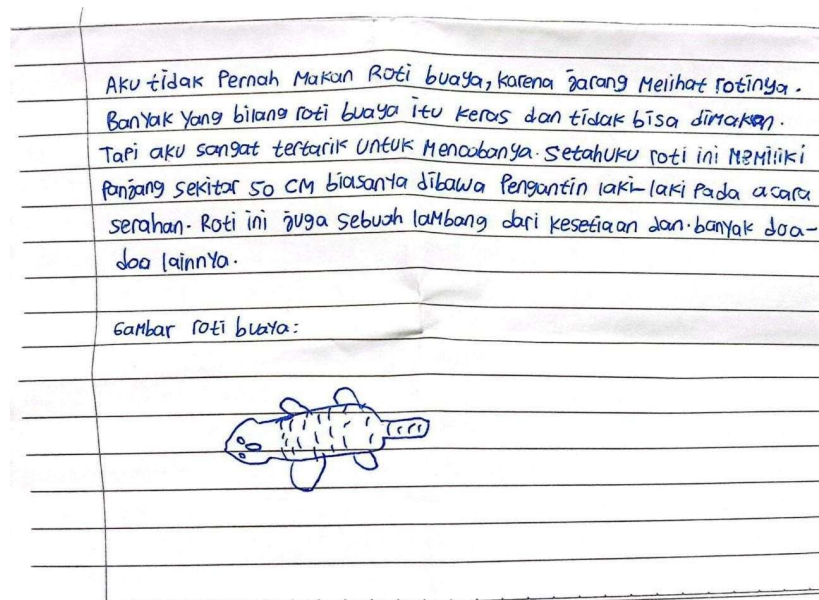 Aku tidak Pernah Makan Roti buaya, karena jarang Melihat rotinya.
Banyak yang bilang roti buaya itu keras dan tidak bisa dimakan.
Tapi aku sangat tertarik untuk Mencobanya. Setahuku roti ini Memiliki
Panjang sekitar 50 CM biasanya dibawa Pengantin laki-laki Pada acara
serahan. Roti ini juga sebuah lambang dari kesetiaan dan. banyak doa-
doa lainnya.
Gambar roti buaya: